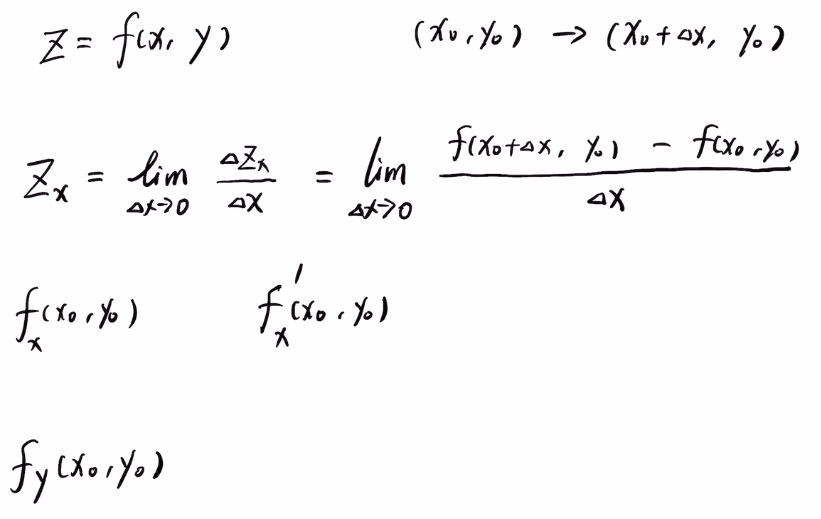 Z = f(x, y) (x₀, y₀) → (x₀+△x, y₀)
Zₓ = lim_{△x→0} △Zₓ/△x = lim_{△x→0} (f(x₀+△x, y₀) − f(x₀, y₀))/△x
fₓ(x₀, y₀) fₓ′(x₀, y₀)
f_y(x₀, y₀)